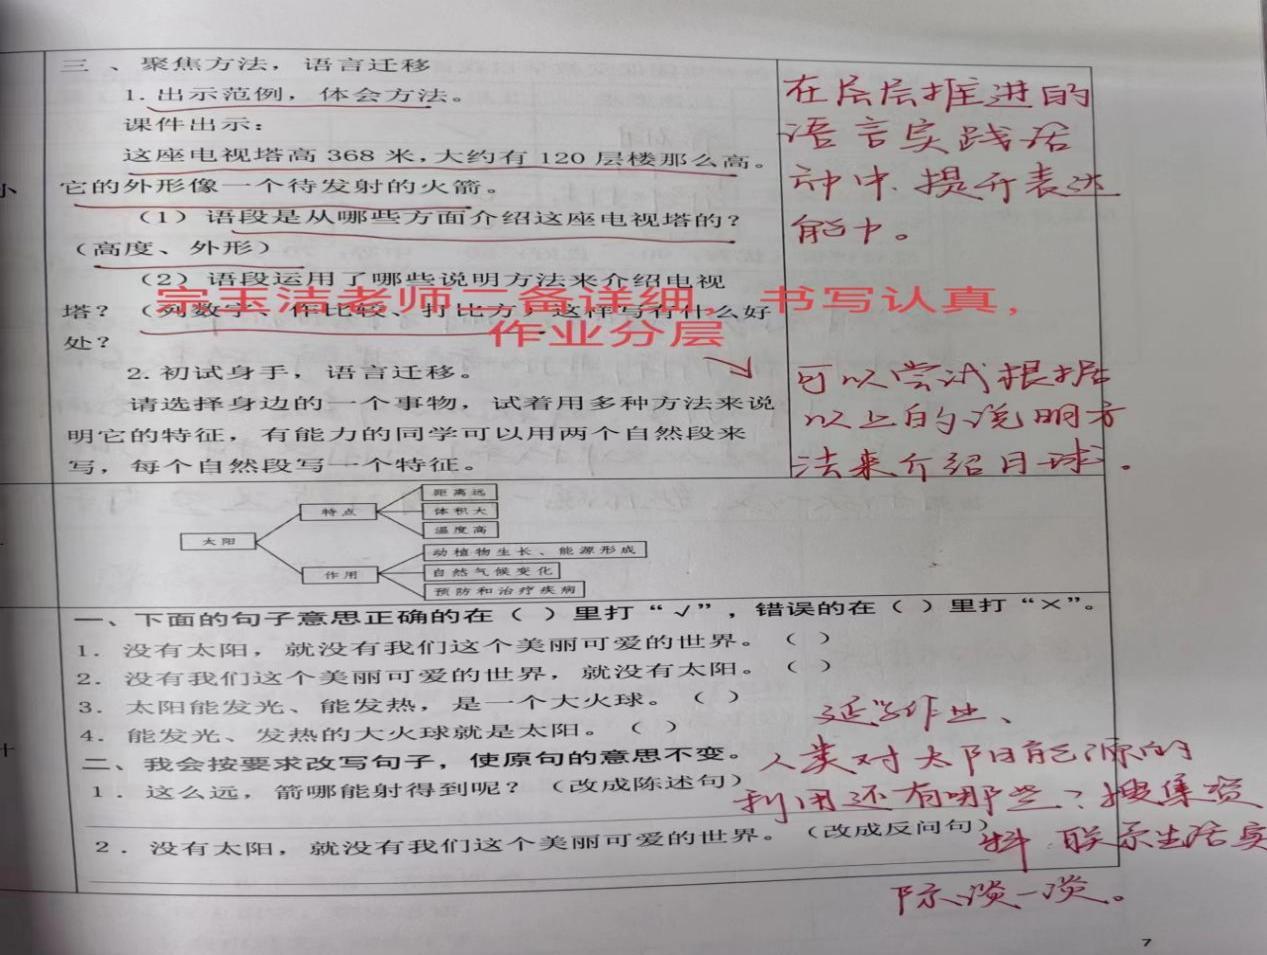 三、聚焦方法，语言迁移
1.出示范例，体会方法。
课件出示：
这座电视塔高 368 米，大约有 120 层楼那么高。
它的外形像一个待发射的火箭。
（1）语段是从哪些方面介绍这座电视塔的？
（高度、外形）
（2）语段运用了哪些说明方法来介绍电视
塔？（列数字、作比较、打比方）这样写有什么好
处？
2.初试身手，语言迁移。
请选择身边的一个事物，试着用多种方法来说
明它的特征，有能力的同学可以用两个自然段来
写，每个自然段写一个特征。
在层层推进的
语言实践活
动中，提升表达
能力。
老师二备详细，书写认真，
作业分层
可以尝试根据
以上的说明方
法来介绍月球。
小
太阳
特点
距离远
体积大
温度高
作用
动植物生长、能源形成
自然气候变化
预防和治疗疾病
一、下面的句子意思正确的在（ ）里打“√”，错误的在（ ）里打“×”。
1. 没有太阳，就没有我们这个美丽可爱的世界。（ ）
2. 没有我们这个美丽可爱的世界，就没有太阳。（ ）
3. 太阳能发光、能发热，是一个大火球。（ ）
4. 能发光、发热的大火球就是太阳。（ ）
二、我会按要求改写句子，使原句的意思不变。
1. 这么远，箭哪能射得到呢？（改成陈述句）
2. 没有太阳，就没有我们这个美丽可爱的世界。（改成反问句）
延学作业、
人类对太阳能源的
利用还有哪些？搜集资
料 联系生活实
际谈一谈。
7